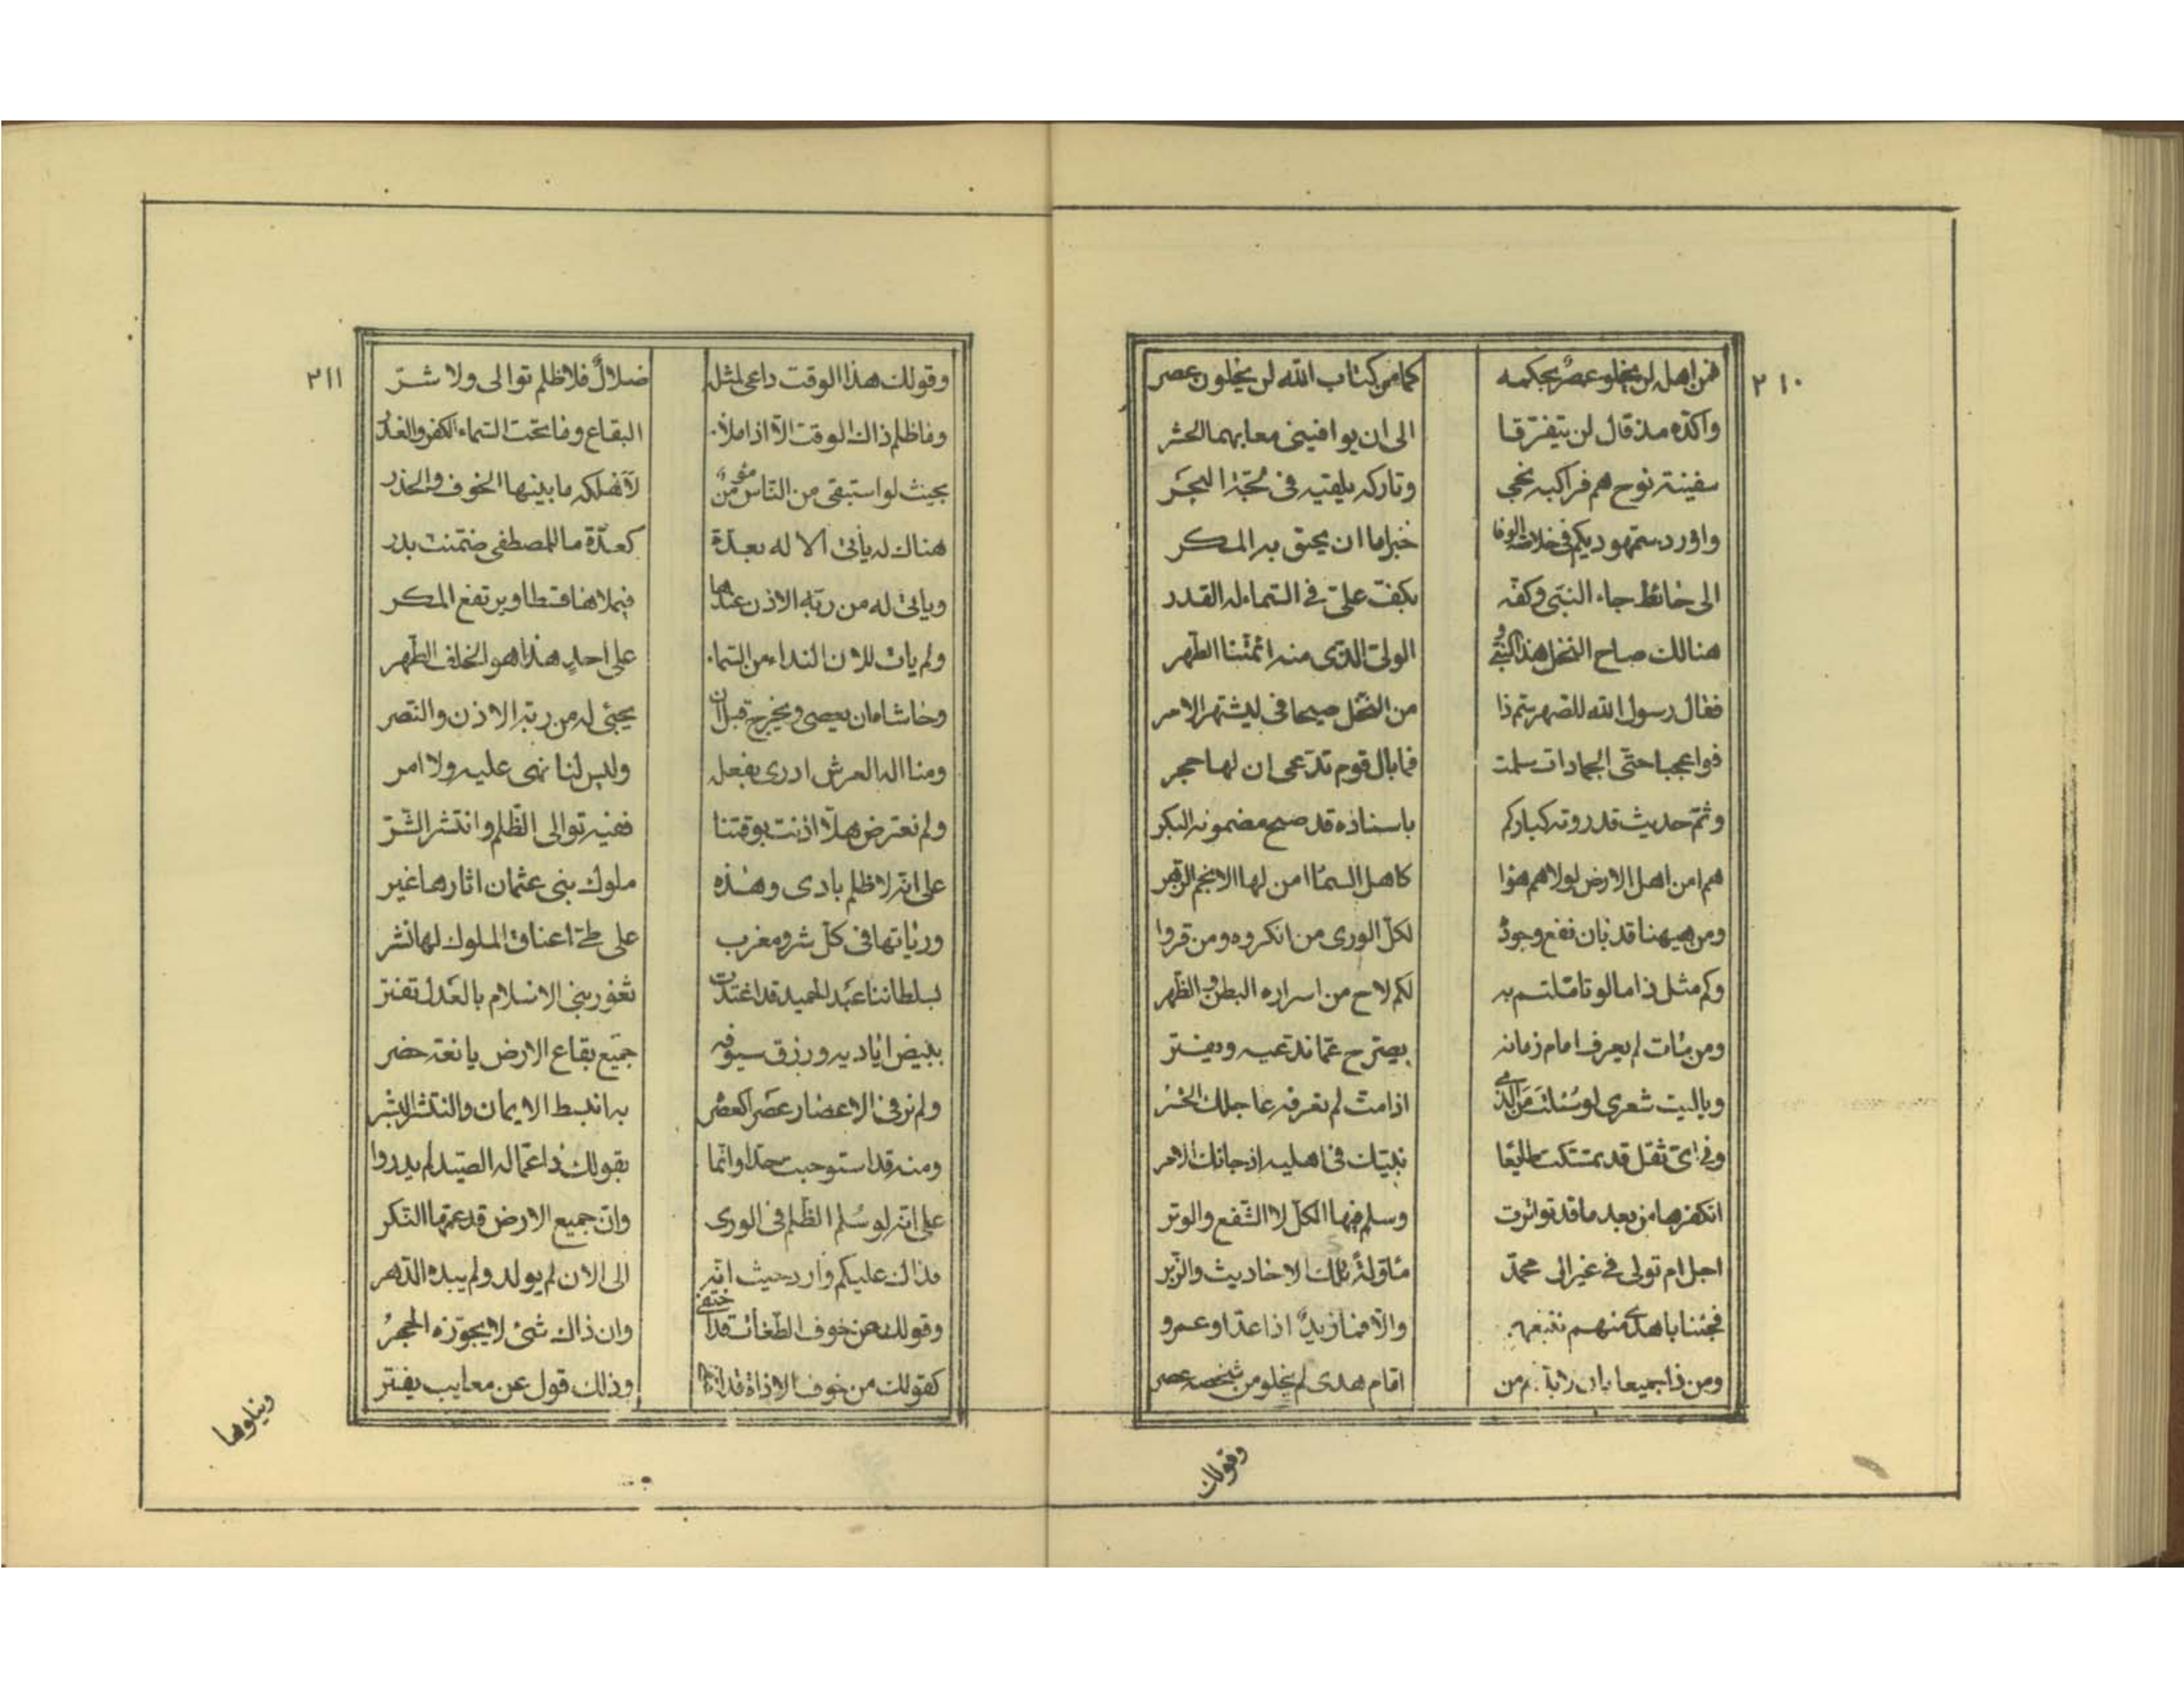 ٢١٠
فمن اهله لن يخلو عصر بحكمه كما من كتاب الله لن يخلون عصر
واكده مذ قال لن يتفرقا الى ان يوافيني معا بهما الحشر
سفينة نوح هم فراكبه نجى وتاركه يلقيه فى لجة البحر
واورد سمهوديكم فى خلاصة الوفا خبرا ما ان يحيق به المكر
الى حائط جاء النبى وكفه بكف على فى السماء له القدر
هنالك صاح النخل هذا النبى و الولى الذى منه ائمتنا الطهر
فقال رسول الله للصهر سم ذا من النخل صيحانى ليشتهر الامر
فواعجبا حتى الجمادات سلمت فما بال قوم تدعى ان لها حجر
وثم حديث قد روته كباركم باسناده قد صح مضمونه البكر
هم امن اهل الارض لولاهم هووا كاهل السما امن لها الانجم الزهر
ومن هيهنا قد بان نفع وجوده لكل الورى من انكروه ومن قروا
وكم مثل ذا ما لو تاملتم به لكم لاح من اسراره البطن والظهر
ومن مات لم يعرف امام زمانه يصرح عما ندعيه ويفتر
وياليت شعرى لو سئلت من الذى اذا مت لم تعرفه عاجلك الخسر
وفى اى ثقل قد تمسكت طايعا نبيك فى اهليه اذ جائك الامر
انكفرها من بعد ما قد تواترت وسلم فيها الكل لا الشفع والوتر
اجل ام تولى فى غير الى محمد مأولة تلك الاحاديث والزبر
فجئنا باهدى منهم نتبعهم والا فما زيد اذا عدا وعمرو
ومن ذا جميعا بان لابد من امام هدى لم يخلو من شخصه عصر
وقولك
٢١١
وقولك هذا الوقت داعى لمثله ضلال فلا ظلم توالى ولا شر
وما ظلم ذاك الوقت الا اذا ملأ البقاع وما تحت السماء الكفر والغدر
بحيث لو استبقى من الناس مؤمن لأهلكه ما بينها الخوف والحذر
هناك له يأتى الا له بعدة كعدة ما للمصطفى ضمنت بدر
وياتى له من ربه الاذن عندها فيملاها قسطا ويرتفع المكر
ولم يات للان النداء من السماء على احد هذا هو الخلف الطهر
وحاشاه ان يعصى ويخرج قبل ان يجئى له من ربه الاذن والنصر
ومنا اله العرش ادرى بفعله وليس لنا نهى عليه ولا امر
ولم نعترض هلا اذنت بوقتنا ففيه توالى الظلم وانتشر الشر
على انه لا ظلم بادى وهذه ملوك بنى عثمان اثارها غير
وراياتها فى كل شرو مغرب على طى اعناق الملوك لها نشر
بسلطاننا عبد الحميد قد اغتدت ثغور بنى الاسلام بالعدل تفتر
ببيض اياديه وزرق سيوفه جميع بقاع الارض يانعة خضر
ولم نر فى الاعصار عصرا كعصر به انبسط الايمان وانتشر البشر
ومنه قد استوجبت حدا وانما بقولك ذا عماله الصيد لم يدروا
على انه لو سلم الظلم فى الورى وان جميع الارض قد عمها النكر
فذاك عليكم وارد حيث انه الى الان لم يولد ولم يبده الدهر
وقولك من خوف الطغات قد اختفى وان ذاك شئ لا يجوزه الحجر
كقولك من خوف الاذاة قد وذلك قول عن معايب يفتر
ويتلوها